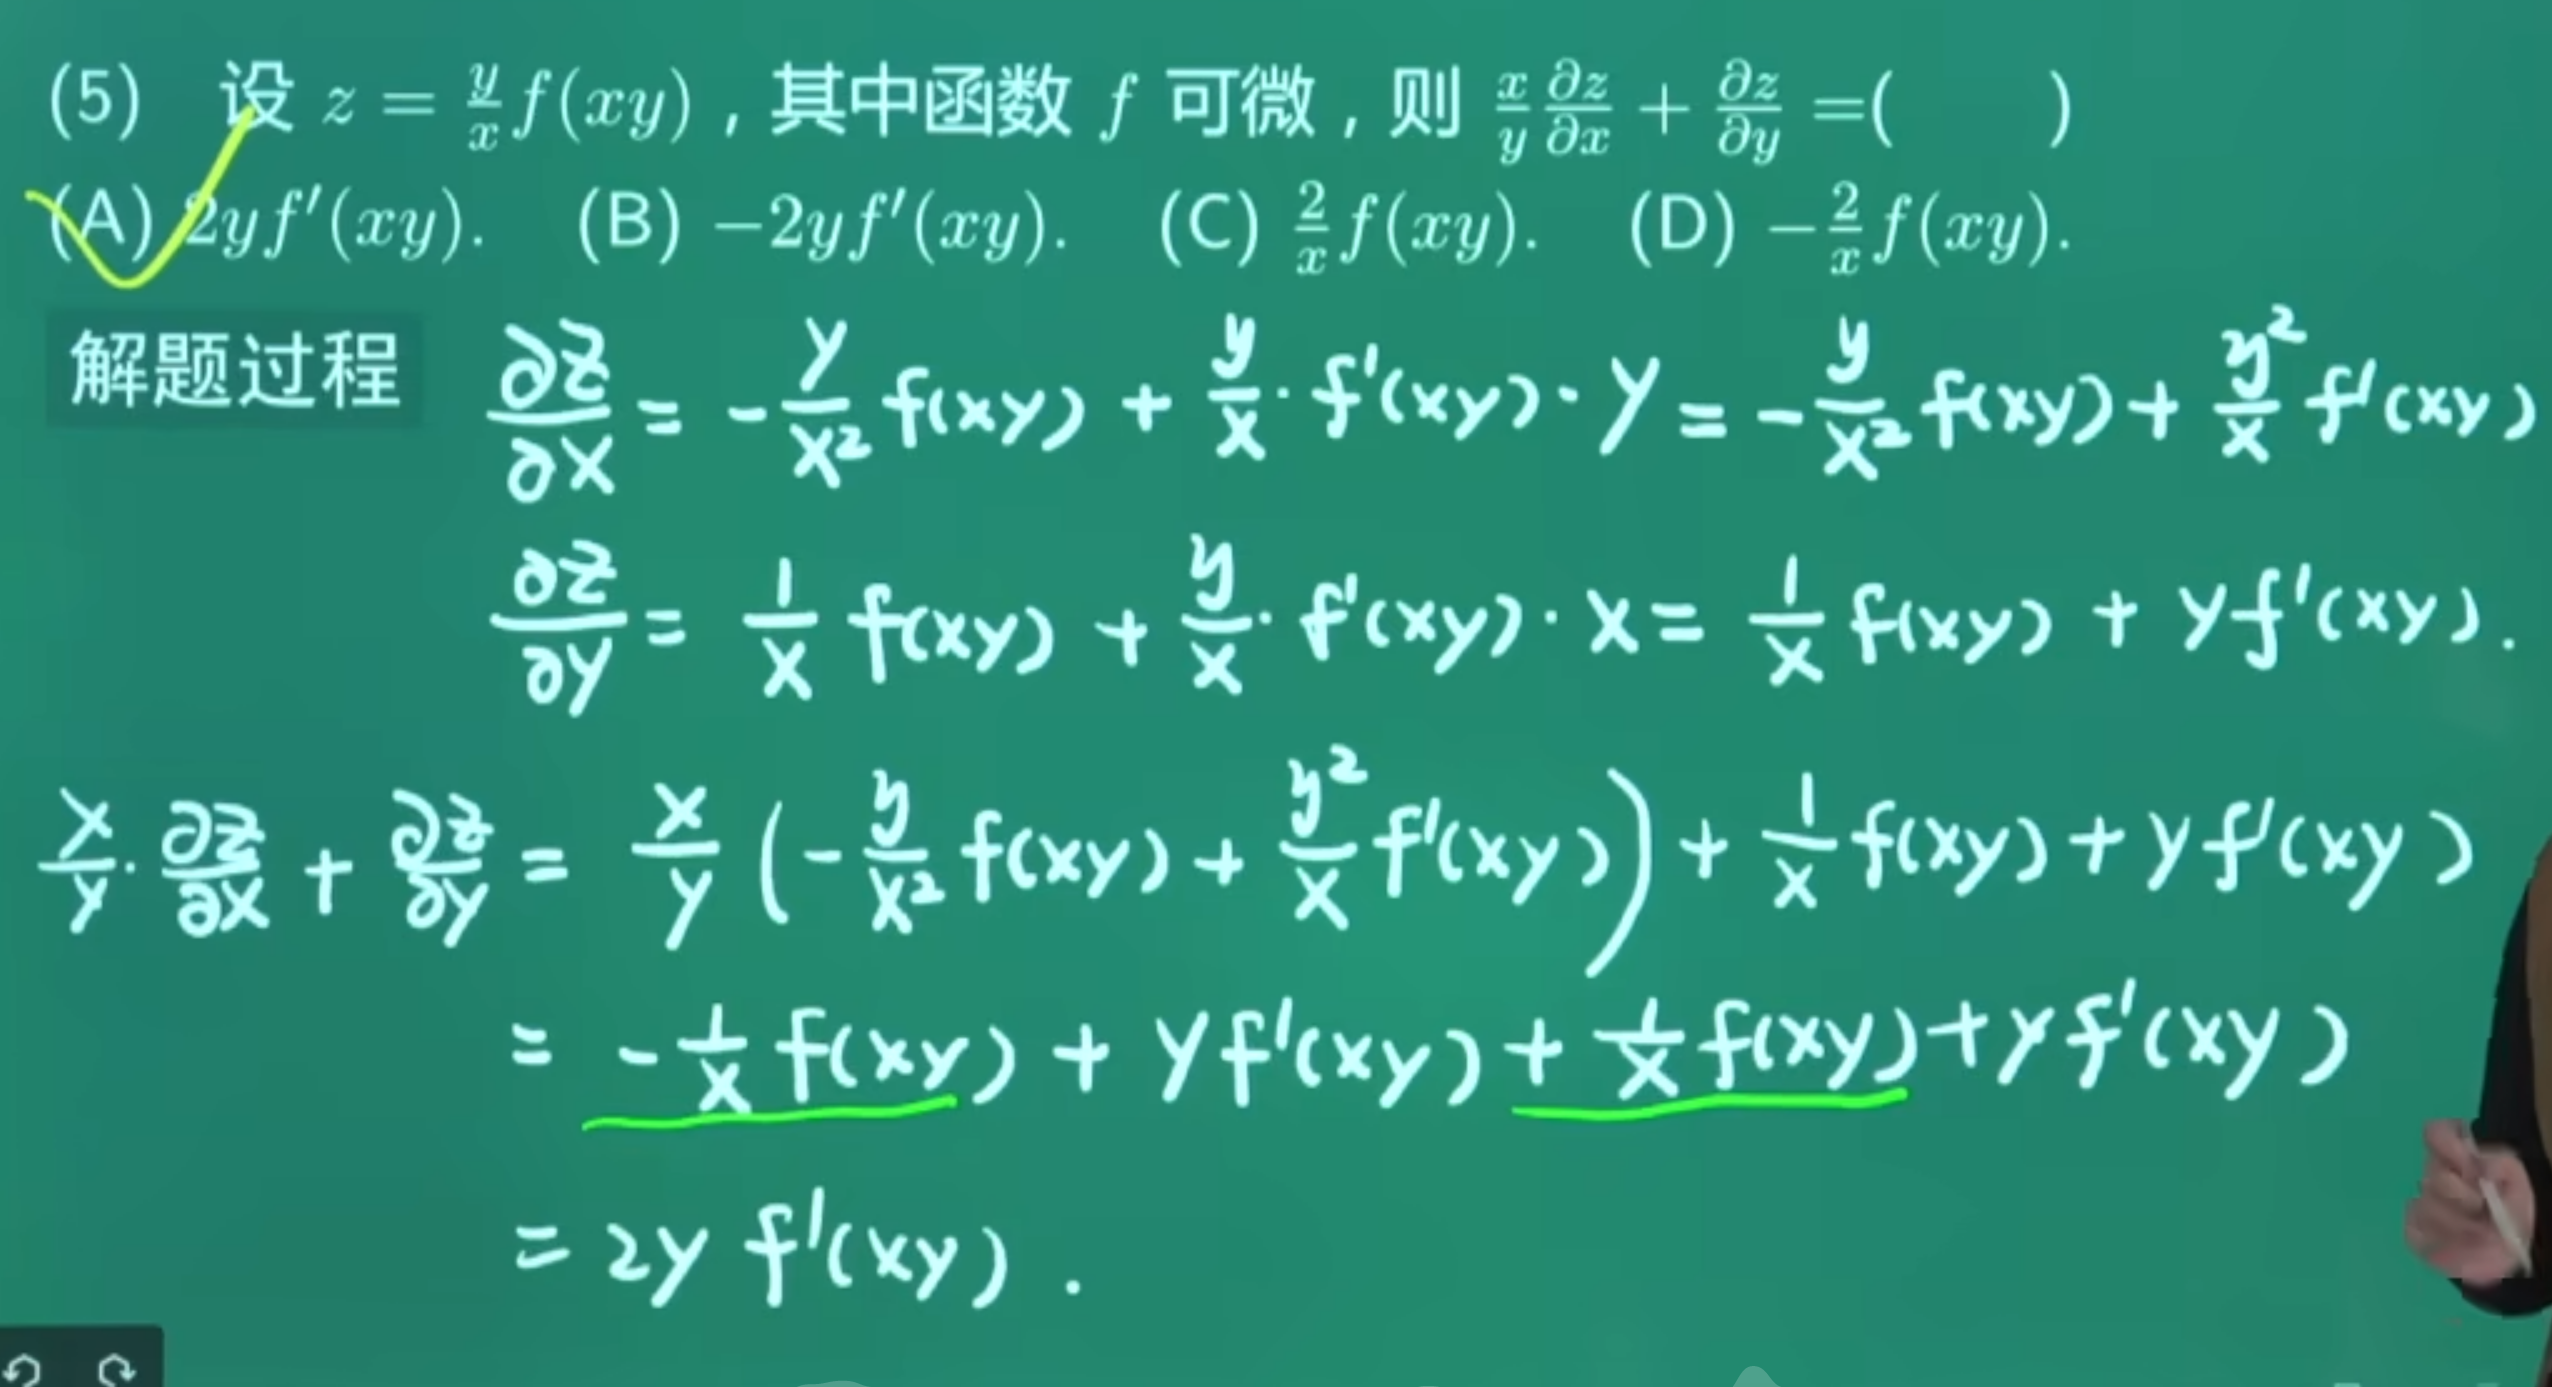 (5) 设 z = y/x f(xy)，其中函数 f 可微，则 x/y ∂z/∂x + ∂z/∂y =( )
(A) 2yf′(xy). (B) −2yf′(xy). (C) 2/x f(xy). (D) −2/x f(xy).
解题过程 ∂z/∂x = -y/x² f(xy) + y/x · f′(xy) · y = -y/x² f(xy) + y²/x f′(xy)
∂z/∂y = 1/x f(xy) + y/x · f′(xy) · x = 1/x f(xy) + y f′(xy).
x/y · ∂z/∂x + ∂z/∂y = x/y (-y/x² f(xy) + y²/x f′(xy)) + 1/x f(xy) + y f′(xy)
= -1/x f(xy) + y f′(xy) + 1/x f(xy) + y f′(xy)
= 2y f′(xy).